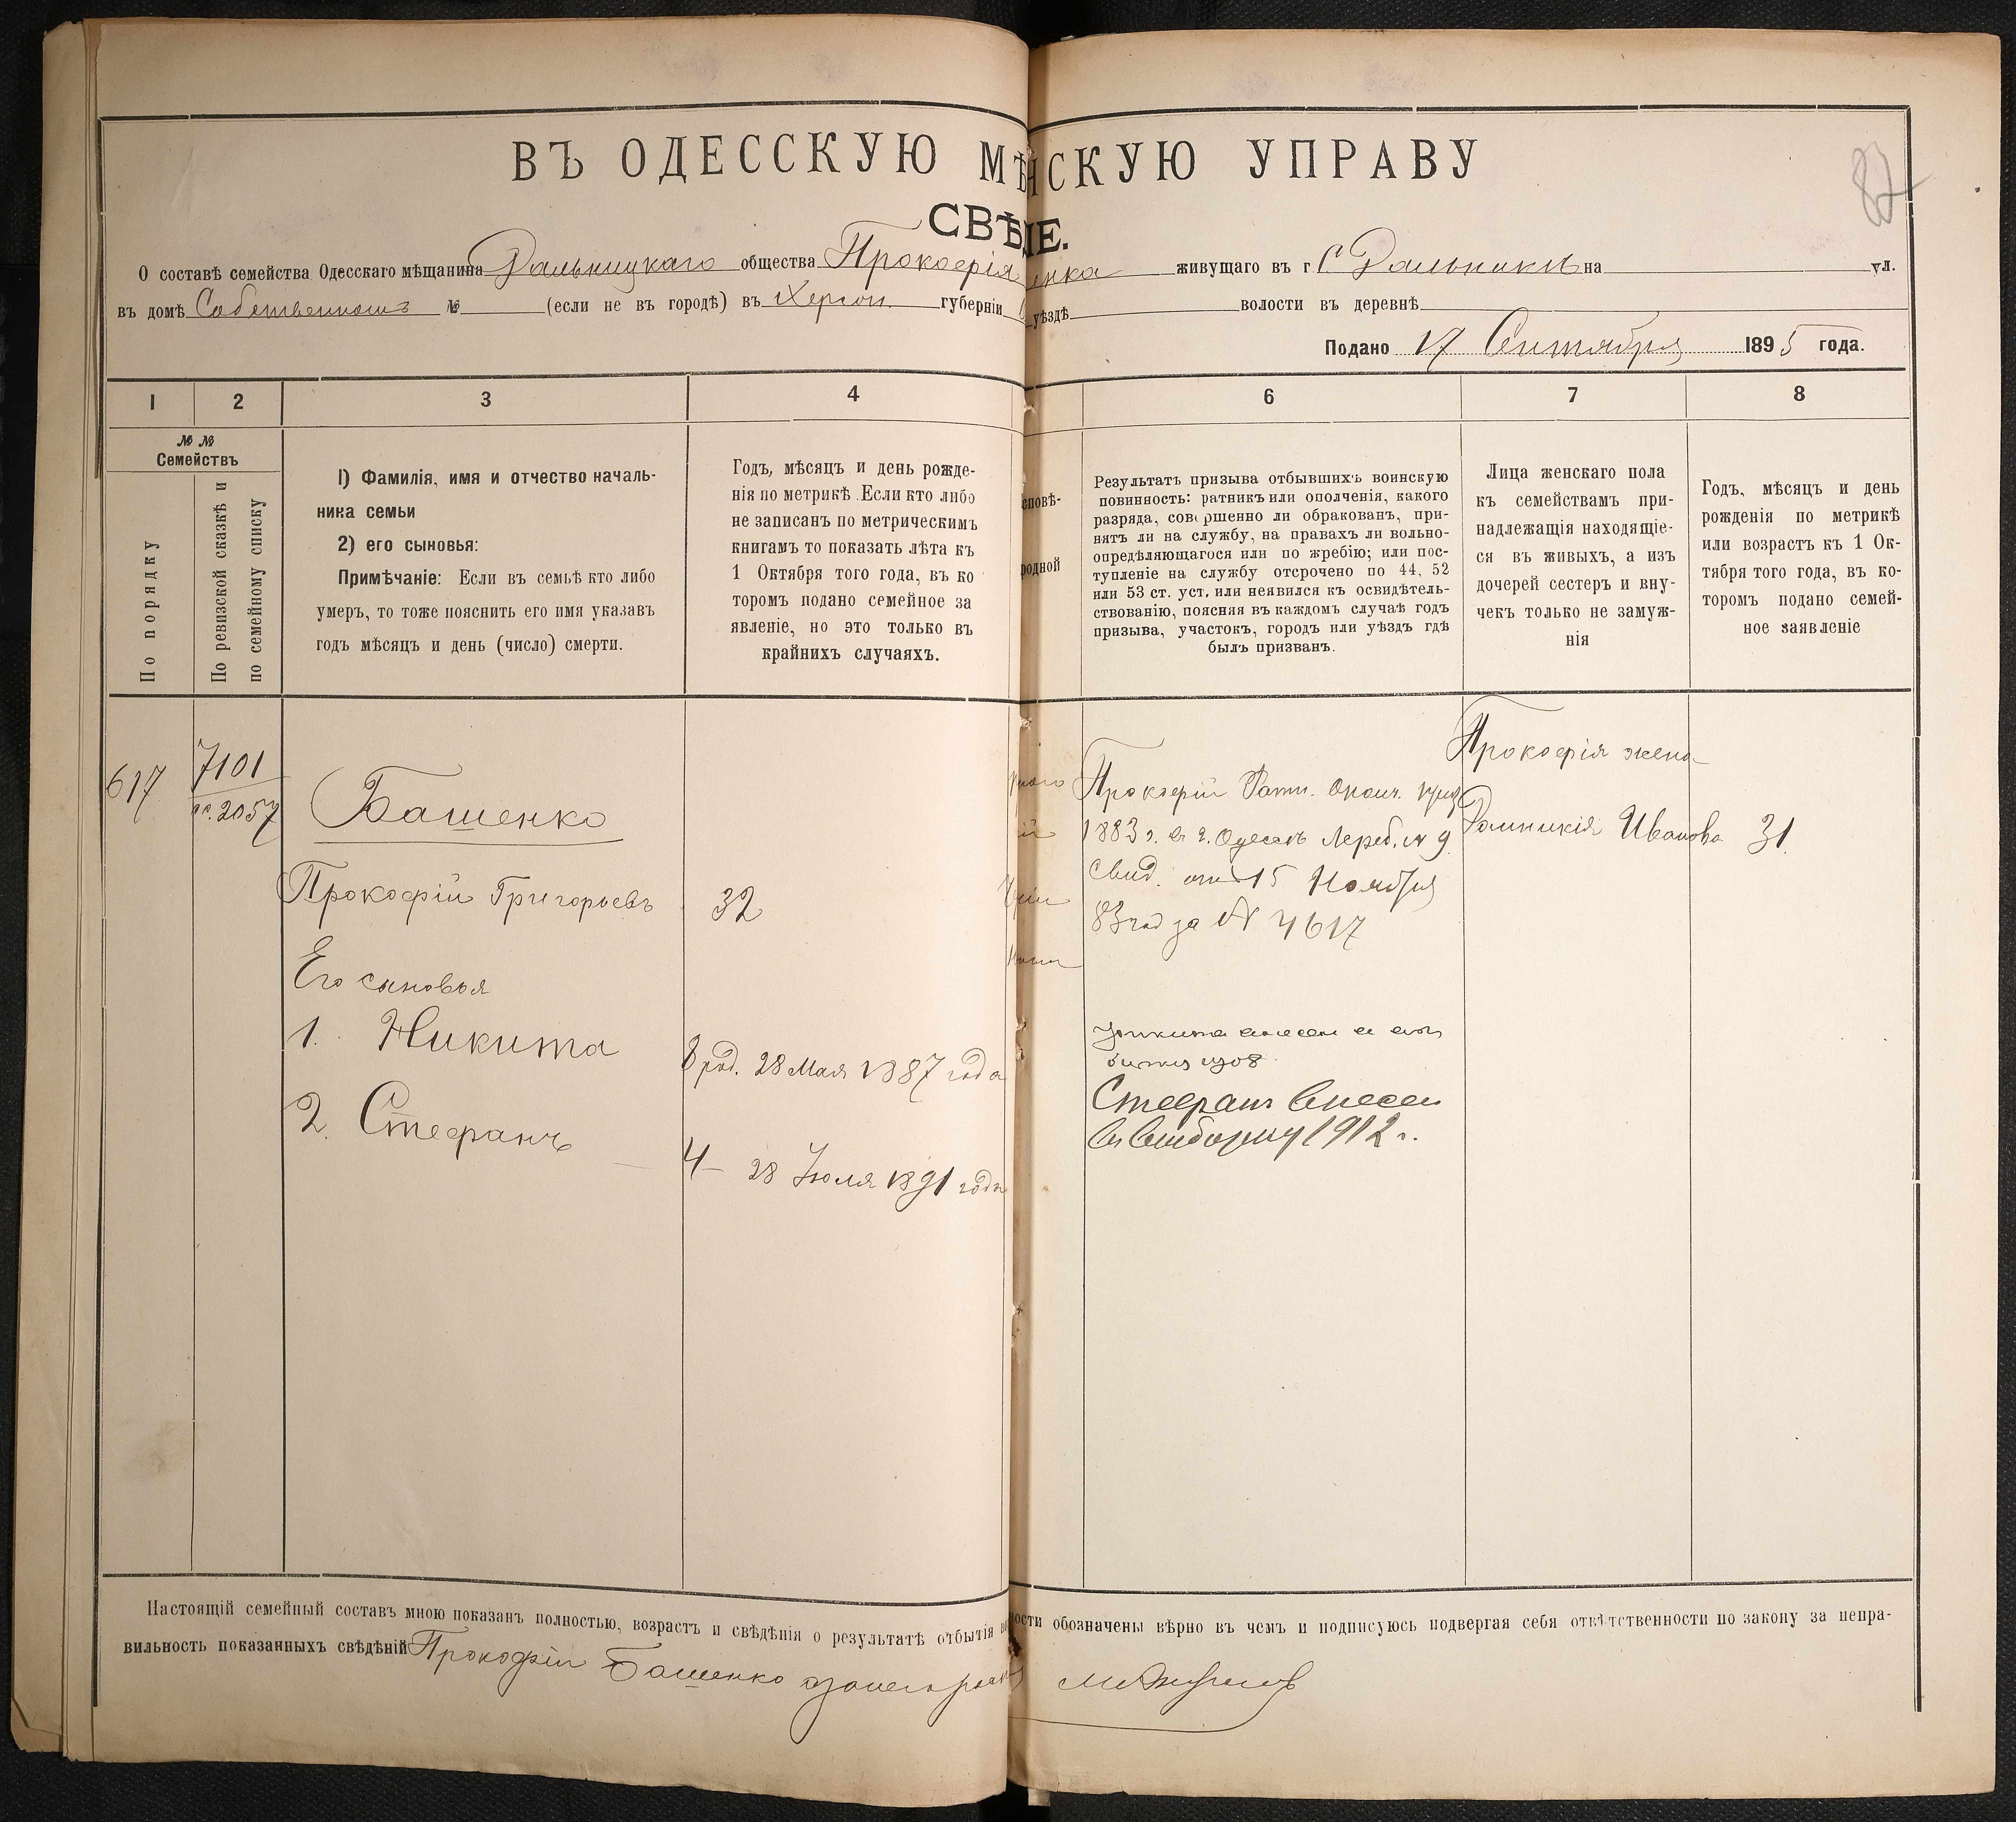 ВЪ ОДЕССКУЮ МѢНСКУЮ УПРАВУ
87
СВѢ ІЕ.
О составѣ семейства Одесскаго мѣщанина Дальницкаго общества Прокофія енка живущаго въ г С Дальникѣ на ул.
въ домѣ Собственномъ № (если не въ городѣ) въ Херсон. губерніи уѣздѣ волости въ деревнѣ
Подано 17 Сентября 1895 года.
1 2 3 4 6 7 8
№ № Семействъ
По порядку
По ревизской сказкѣ и по семейному списку
1) Фамилія, имя и отчество началь-
ника семьи
2) его сыновья:
Примѣчаніе: Если въ семьѣ кто либо
умеръ, то тоже пояснить его имя указавъ
годъ мѣсяцъ и день (число) смерти.
Годъ, мѣсяцъ и день рожде-
нія по метрикѣ. Если кто либо
не записанъ по метрическимъ
книгамъ то показать лѣта къ
1 Октября того года, въ ко
торомъ подано семейное за
явленіе, но это только въ
крайнихъ случаяхъ.
сповѣ-
родной
Результатъ призыва отбывшихъ воинскую
повинность: ратникъ или ополченія, какого
разряда, совершенно ли обракованъ, при-
нятъ ли на службу, на правахъ ли вольно-
опредѣляющагося или по жребію; или пос-
тупленіе на службу отсрочено по 44, 52
или 53 ст. уст. или неявился къ освидѣтель-
ствованію, поясняя въ каждомъ случаѣ годъ
призыва, участокъ, городъ или уѣздъ гдѣ
былъ призванъ.
Лица женскаго пола
къ семействамъ при-
надлежащія находящіе-
ся въ живыхъ, а изъ
дочерей сестеръ и вну-
чекъ только не замуж-
нія
Годъ, мѣсяцъ и день
рожденія по метрикѣ
или возрастъ къ 1 Ок-
тября того года, въ ко-
торомъ подано семей-
ное заявленіе
617
7101
2057
Башенко
Прокофій Григорьевъ 32
Его сыновья
1. Никита
8 род. 28 Мая 1887 года
2. Стефанъ
4 — 28 Іюля 1891 года
Прокофій Ратн. Ополч.
1883 г. въ г. Одессѣ Жреб. № 9
Свид. отъ 15 Ноября
83 год за № 4617
Стефанъ Внесен
въ 1912 г.
Прокофія жена
Домникія Иванова 31
Настоящій семейный составъ мною показанъ полностью, возрастъ и свѣдѣнія о результатѣ отбытія ности обозначены вѣрно въ чемъ и подписуюсь подвергая себя отвѣтственности по закону за непра-
вильность показанныхъ свѣдѣній Прокофій Башенко